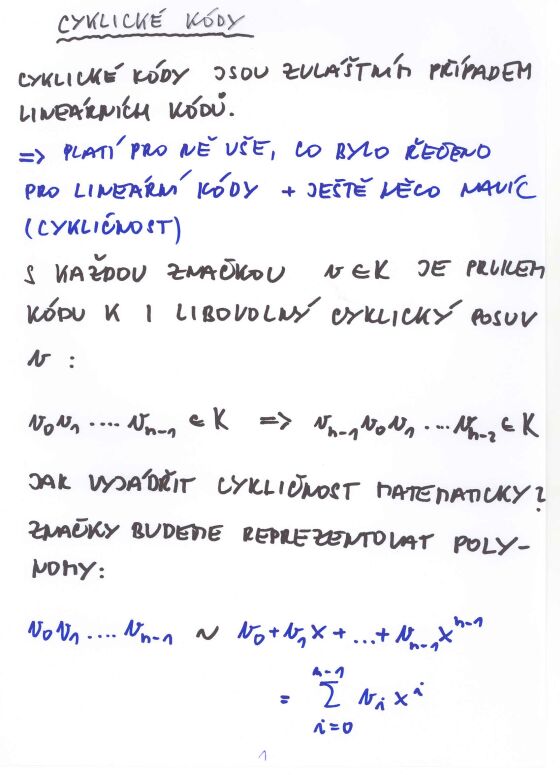 CYKLICKÉ KÓDY
CYKLICKÉ KÓDY JSOU ZVLÁŠTNÍM PŘÍPADEM
LINEÁRNÍCH KÓDŮ.
=> PLATÍ PRO NĚ VŠE, CO BYLO ŘEČENO
PRO LINEÁRNÍ KÓDY + JEŠTĚ NĚCO NAVÍC
(CYKLIČNOST)
S KAŽDOU ZNAČKOU v ∈ K JE PRVKEM
KÓDU K I LIBOVOLNÝ CYKLICKÝ POSUV
v :
v₀v₁ .... vₙ₋₁ ∈ K => vₙ₋₁v₀v₁ ... vₙ₋₂ ∈ K
JAK VYJÁDŘIT CYKLIČNOST MATEMATICKY?
ZNAČKY BUDEME REPREZENTOVAT POLY-
NOMY:
v₀v₁ .... vₙ₋₁ ~ v₀ + v₁x + ... + vₙ₋₁xⁿ⁻¹
= ∑_{i=0}^{n-1} vᵢ xⁱ
1